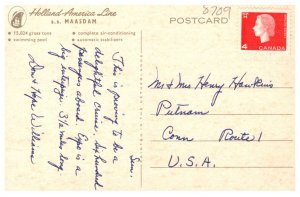 Holland-America Line
S.S. MAASDAM
• 15,024 gross tons
• swimming pool
• complete air-conditioning
• automatic stabilizers
POSTCARD
8789
CANADA
4
Sun.
This is proving to be a
delightful cruise. Six hundred
passengers aboard. Expo is a
big enterprise. 3½ miles long
Don & Hope Williams
Mr & Mrs Henry Hawkins
Putnam
Conn Route 1
U.S.A.